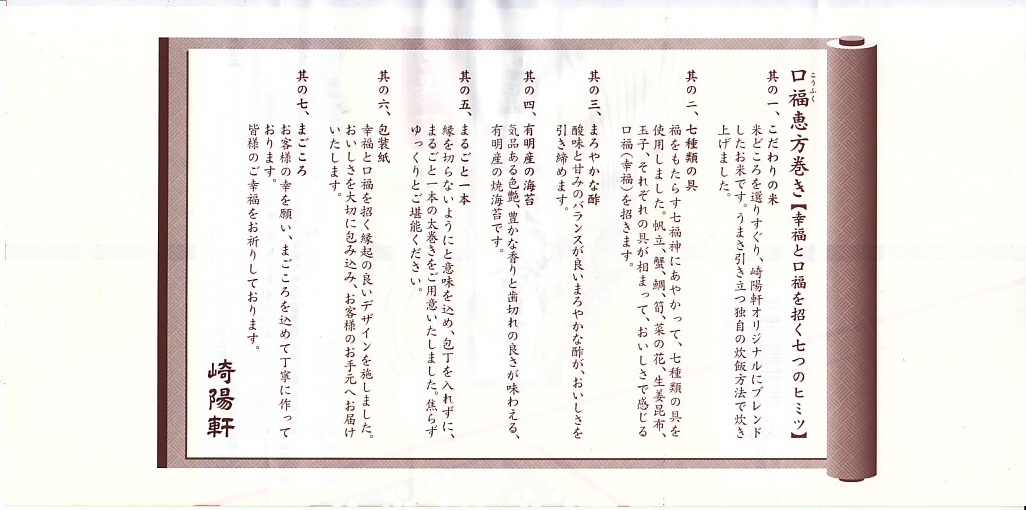 口福恵方巻き【幸福と口福を招く七つのヒミツ】
こうふく
其の一、こだわりの米
米どころを選りすぐり、崎陽軒オリジナルにブレンド
したお米です。うまさ引き立つ独自の炊飯方法で炊き
上げました。
其の二、七種類の具
福をもたらす七福神にあやかって、七種類の具を
使用しました。帆立、蟹、鯛、筍、菜の花、生姜昆布、
玉子、それぞれの具が相まって、おいしさで感じる
口福(幸福)を招きます。
其の三、まろやかな酢
酸味と甘みのバランスが良いまろやかな酢が、おいしさを
引き締めます。
其の四、有明産の海苔
気品ある色艶、豊かな香りと歯切れの良さが味わえる、
有明産の焼海苔です。
其の五、まるごと一本
縁を切らないようにと意味を込め、包丁を入れずに、
まるごと一本の太巻きをご用意いたしました。焦らず
ゆっくりとご堪能ください。
其の六、包装紙
幸福と口福を招く縁起の良いデザインを施しました。
おいしさを大切に包み込み、お客様のお手元へお届け
いたします。
其の七、まごころ
お客様の幸を願い、まごころを込めて丁寧に作って
おります。
皆様のご幸福をお祈りしております。
崎陽軒